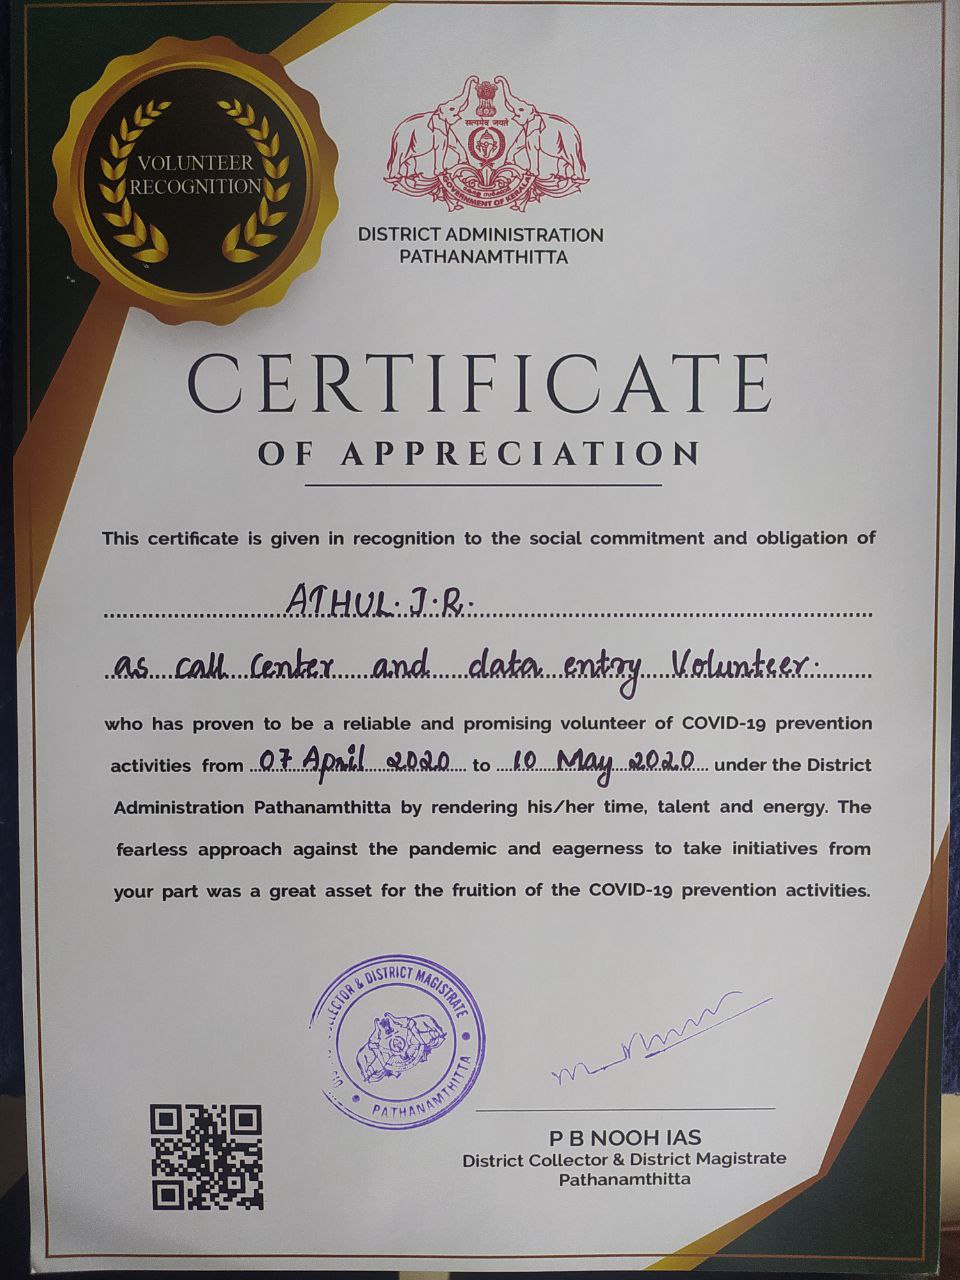 VOLUNTEER
RECOGNITION
सत्यमेव जयते
GOVERNMENT OF KERALA
DISTRICT ADMINISTRATION
PATHANAMTHITTA
CERTIFICATE
OF APPRECIATION
This certificate is given in recognition to the social commitment and obligation of
ATHUL. J.R.
as call center and data entry Volunteer.
who has proven to be a reliable and promising volunteer of COVID-19 prevention
activities from 07 April 2020 to 10 May 2020 under the District
Administration Pathanamthitta by rendering his/her time, talent and energy. The
fearless approach against the pandemic and eagerness to take initiatives from
your part was a great asset for the fruition of the COVID-19 prevention activities.
LLECTOR & DISTRICT MAGISTRATE
PATHANAMTHITTA
P B NOOH IAS
District Collector & District Magistrate
Pathanamthitta